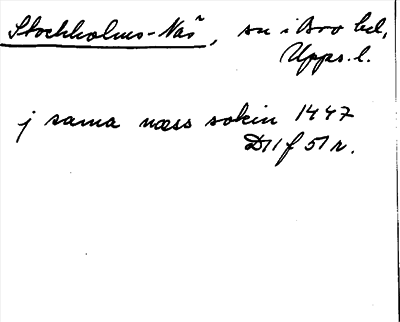 Stockholms-Näs, sn i Bro hd,
Upps. l.
j sama næss sokin 1447
D11 f 51 r.